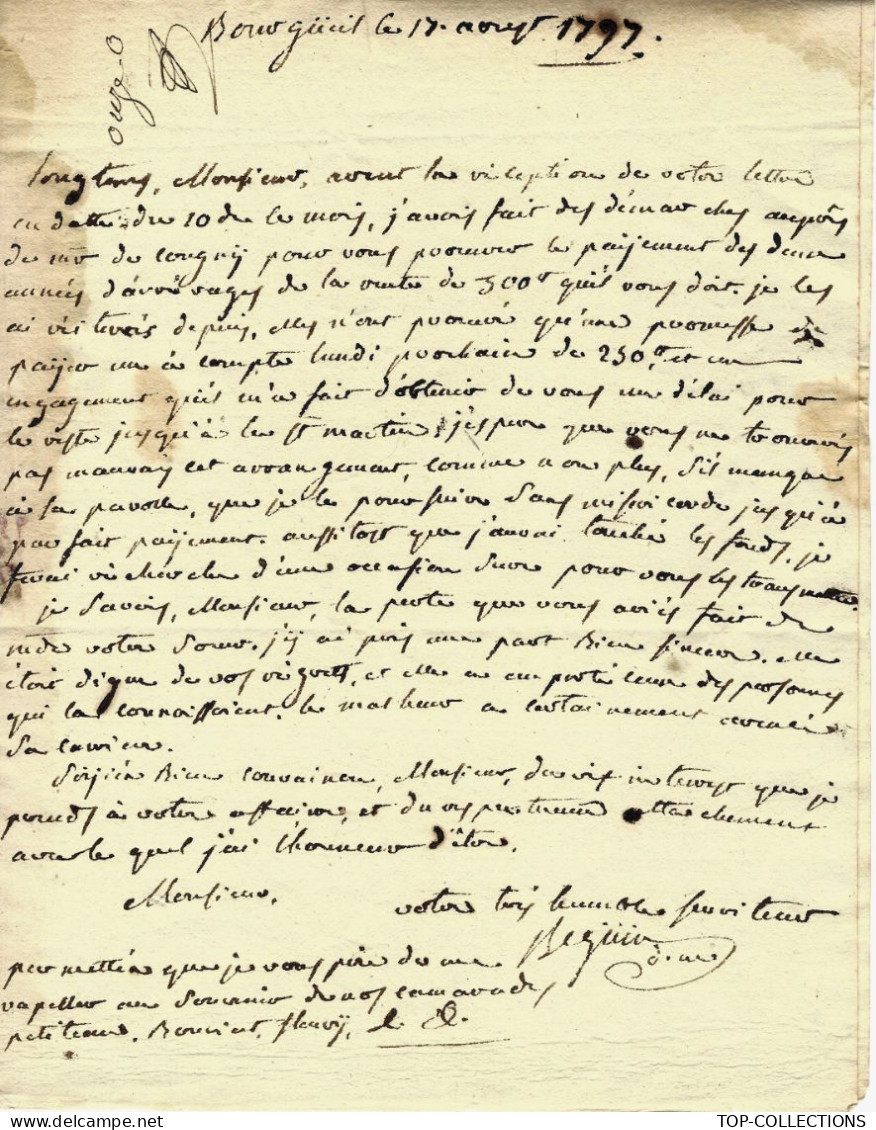 Bourgüeil le 17. aoust 1797.
longtems, Monsieur, avent la réception de votre lettre
en datte du 10 de ce mois, j'avois fait des démarches auprès
de mr de cougny pour vous procurer le paÿement des deux
années d'arrérages de la rente de 500# qu'il vous doit. je les
ai réiterés depuis, elles n'ont procuré qu'une promesse de
paÿer un à compte lundi prochain de 250# et un
engagement qu'il m'a fait d'obtenir de vous un délai pour
le reste jusqu'à la st martin, j'espere que vous ne trouverés
pas mauvais cet arrangement, comme non plus, s'il manque
à sa parolle, que je le poursuive sans misericorde jusqu'à
parfait paÿement. aussitost que j'aurai touché les fonds, je
ferai recherche d'une occasion sure pour vous les transmettre.
je savois, Monsieur, la perte que vous aviés fait de
mde votre soeur. j'ÿ ai pris une part Bien sincere. elle
étoit digne de vos régrets, et elle a emporté ceux des personnes
qui la connoissoient. le malheur a certainement avancé
sa carriere.
Soÿés Bien convaincu, Monsieur, du vif interest que je
prends à votre affaire, et du respectueux attachement
avec le quel j'ai l'honneur d'être,
Monsieur,
votre très humble serviteur
Begüin
permettés que je vous prie de me
rapeller au souvenir de nos camarades
petiteau, Bourient, fleurÿ, &. &.
TOP-COLLECTIONS